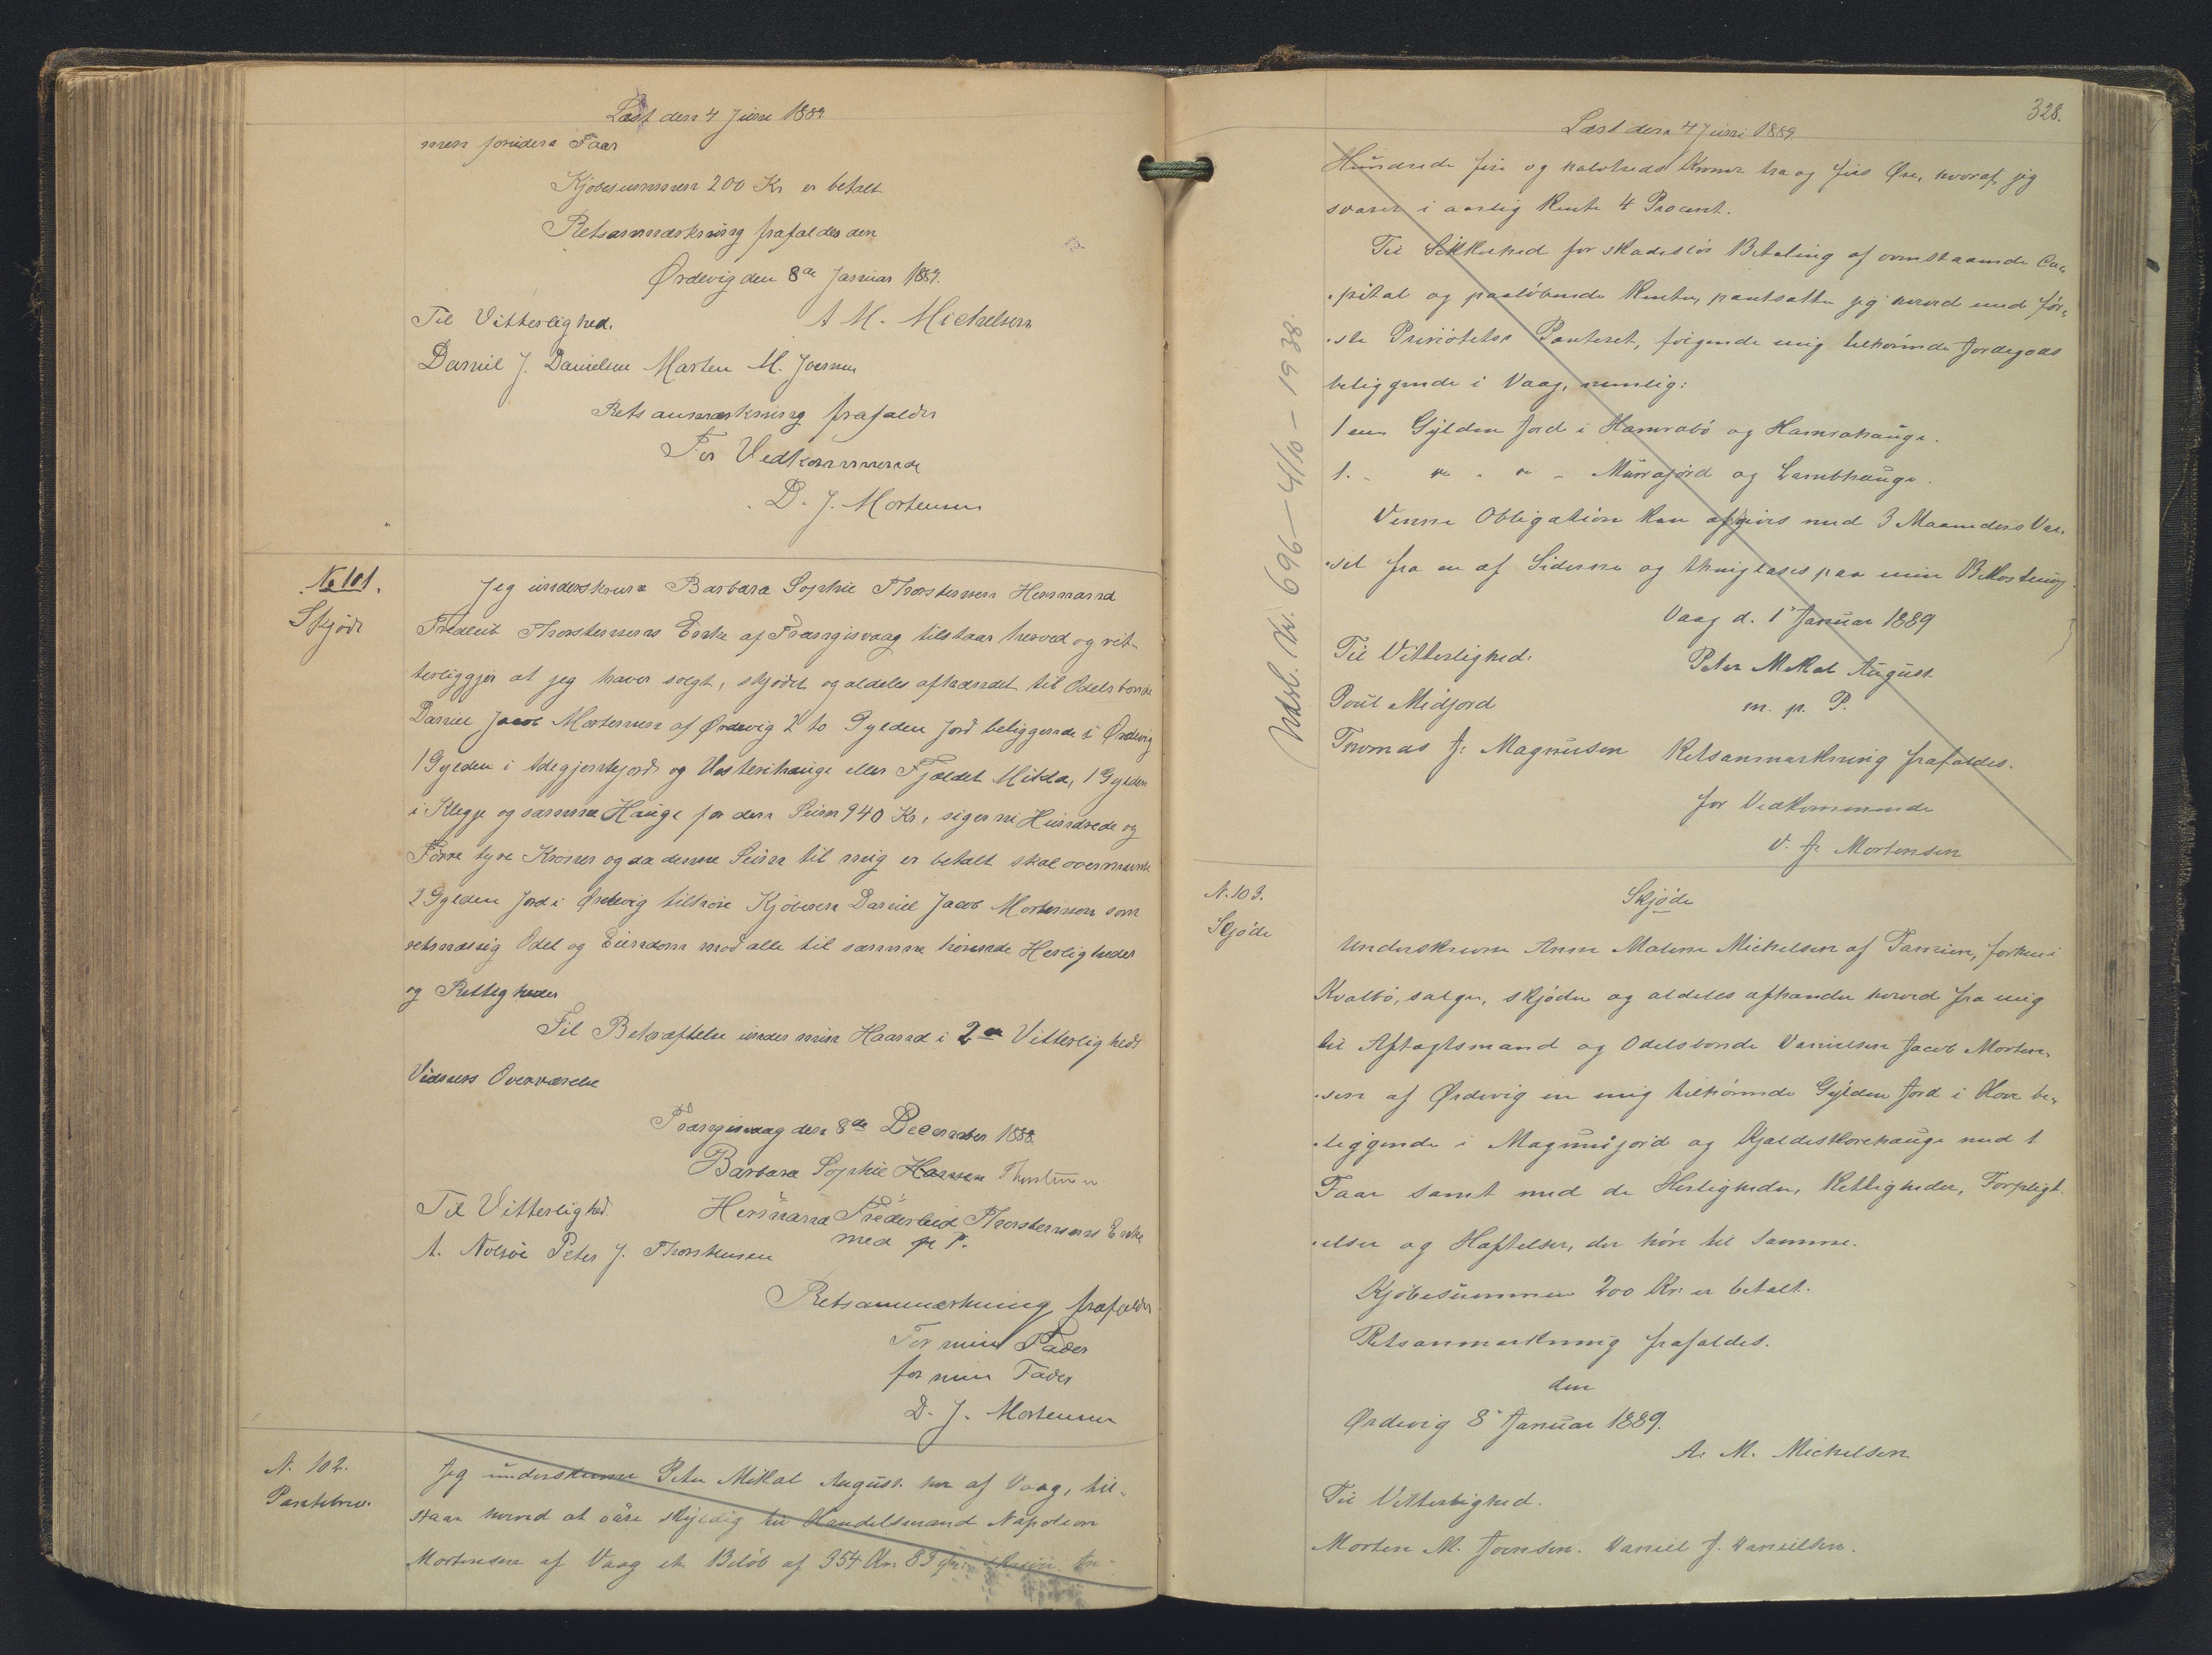 Læst den 4 Juni 1889
men foruden Faar
Kjøbesummen 200 Kr er betalt
Retsanmærkning frafaldes den
Ørdevig den 8de Januar 1889.
Til Vitterlighed. A M. Michelsen
Daniel J. Danielsen Morten M. Joensen
Retsanmærkning frafaldes
For Vedkommende
D. J. Mortensen
No 101.
Skjøde
Jeg underskrevne Barbara Sophie Thorstensen Hermand
Thorstensens Enke af Frangisvaag tilstaar herved og vit-
terliggjør at jeg haver solgt, skjødet og aldeles afhændet til Odelsbonde
Daniel Jacob Mortensen af Ørdevig 2 to Gylden Jord beliggende i Ørdevig
1 Gylden i og eller Fjeldet Mikla, 1 Gylden
i Klegje og samme Hauge for den Sum 940 Kr, siger ni Hundrede og
Førre tyve Kroner og da denne Sum til mig er betalt skal ovennævnte
2 Gylden Jord i Ørdevig tilhøre Kjøberen Daniel Jacob Mortensen som
retmæssig Odel og Eiendom mod alle til samme hørende Herligheder
og Rettigheder
Til Bekræftelse under min Haand i 2de Vitterligheds
Vidners Overværelse
Frangisvaag den 8de December 1888.
Barbara Sophie Hansen Thorstensen
Til Vitterlighed. Hermana Thorstensens Enke
A. Nolsøe Peter J. Thorstensen med p P.
Retsanmærkning frafaldes
For min Fader
for min Fader
D. J. Mortensen
N. 102.
Pantebrev.
Jeg underskrevne Peter Mikal August. her af Vaag, til-
staar herved at være skyldig til Handelsmand Napoleon
Mortensen af Vaag et Beløb af 354 Kr. 83 Øre skrive tre-
328.
Læst den 4 Juni 1889
Hundrede fire og halvtreds Kroner tre og firs Øre, hvoraf jeg
svarer i aarlig Rente 4 Procent.
Til Sikkerhed for skadesløs Betaling af ovenstaaende Ca-
pital og paaløbende Renter, pantsætter jeg herved med før-
ste Prioritets Panteret, følgende mig tilhørende Jordegods
beliggende i Vaag, nemlig:
1 en Gylden Jord i Hamrabø og Hamrahauge.
1. - " - " - Murrajørd og Lambhauge.
Denne Obligation kan opsiges med 3 Maaneders Var-
sel fra en af Siderne og thinglæses paa min Bekostning.
Vaag d. 1' Januar 1889
Til Vitterlighed: Peter Mikal August
Poul Midjord m. p. P.
Thomas J: Magnusen Retsanmærkning frafaldes.
for Vedkommende
D. J. Mortensen
Udsl. Nr. 696 - 4/10 - 1938.
N. 103.
Skjøde
Skjøde
Underskrevne Anne Malene Michelsen af Famien, forhen i
Kvalbø, sælger, skjøder og aldeles afhænder herved fra mig
til Aftægtsmand og Odelsbonde Danielsen Jacob Morten-
sen af Ørdevig en mig tilhørende Gylden Jord i Hove be-
liggende i Magnusjørd og Kjaldeskorehauge med 1
Faar samt med de Herligheder, Rettigheder, Forpligt-
elser og Hæftelser, der høre til Samme.
Kjøbesummen 200 Kr. er betalt.
Retsanmærkning frafaldes.
den
Ørdevig 8' Januar 1889.
A. M. Michelsen
Til Vitterlighed.
Morten M. Joensen. Daniel J. Danielsen.